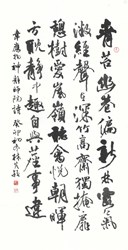 青苔幽巷遍新林露氣
微經聲在深竹高齋獨掩扉
憩樹愛嵐嶺聽禽悅朝暉
方耽靜中趣自與塵事違
韋應物神靜師院詩癸卯